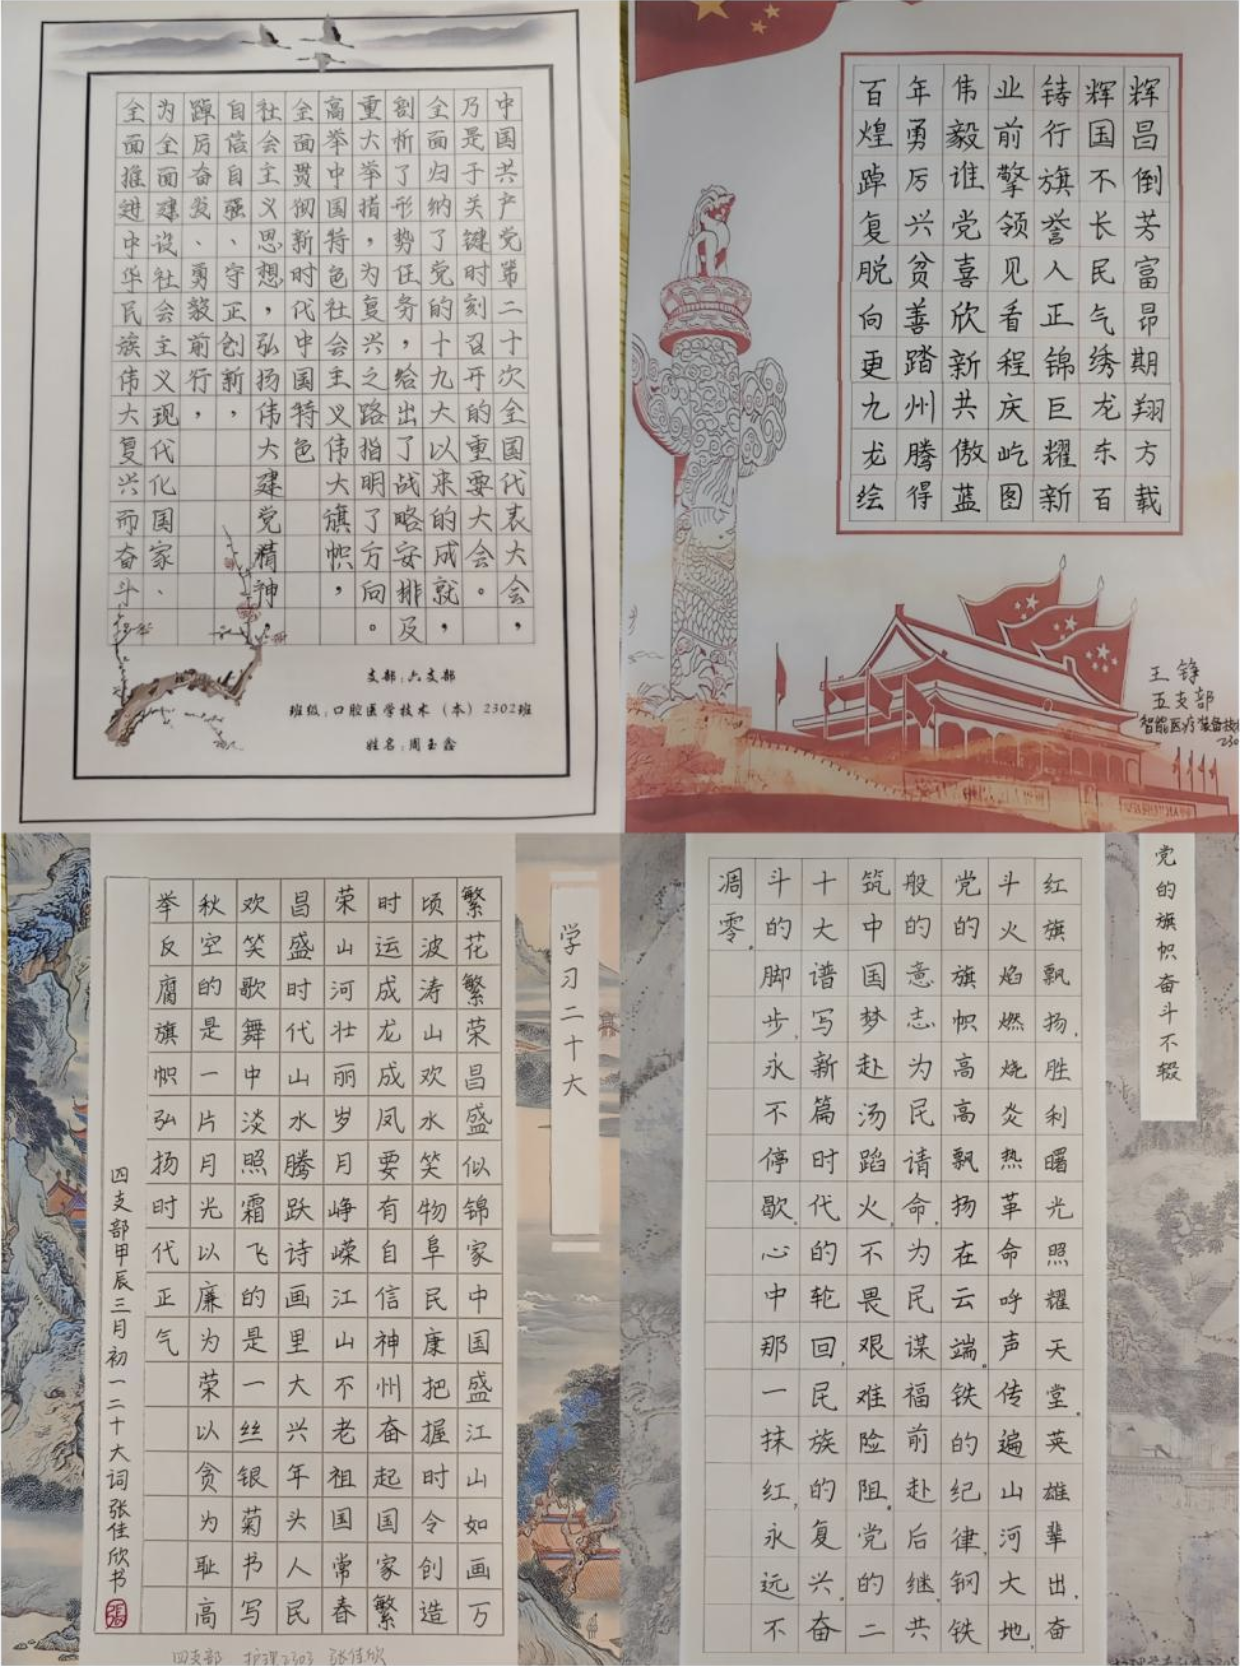 中国共产党第二十次全国代表大会，
乃是于关键时刻召开的重要大会。
全面归纳了党的十九大以来的成就，
剖析了形势任务，给出了战略安排及
重大举措，为复兴之路指明了方向。
高举中国特色社会主义伟大旗帜，
全面贯彻新时代中国特色
社会主义思想，弘扬伟大建党精神，
自信自强、守正创新，
踔厉奋发、勇毅前行，
为全面建设社会主义现代化国家、
全面推进中华民族伟大复兴而奋斗。
支部：六支部
班级：口腔医学技术（本）2302班
姓名：周玉鑫
百年伟业铸辉辉
煌勇毅前行国昌
踔厉谁擎旗不倒
复兴党领誉长芳
脱贫喜见人民富
向善欣看正气昂
更踏新程锦绣期
九州共庆巨龙翔
龙腾傲屹耀东方
绘得蓝图新百载
王铮
五支部
智能医疗装备技
学习二十大
繁花繁荣昌盛似锦家中国盛江山如画万
顷波涛山欢水笑物阜民康把握时令创造
时运成龙成凤要有自信神州奋起国家繁
荣山河壮丽岁月峥嵘江山不老祖国常春
昌盛时代山水腾跃诗画里大兴年头人民
欢笑歌舞中淡照霜飞的是一丝银菊书写
秋空的是一片月光以廉为荣以贪为耻高
举反腐旗帜弘扬时代正气
四支部甲辰三月初一二十大词张佳欣书
四支部 护理2303 张佳欣
党的旗帜奋斗不辍
红旗飘扬,胜利曙光照耀天堂.英雄辈出,奋
斗火焰燃烧炎热革命呼声传遍山河大地,
党的旗帜高高飘扬在云端.铁的纪律,钢铁
般的意志为民请命,为民谋福前赴后继共
筑中国梦赴汤蹈火,不畏艰难险阻.党的二
十大谱写新篇时代的轮回,民族的复兴.奋
斗的脚步,永不停歇.心中那一抹红,永远不
凋零.